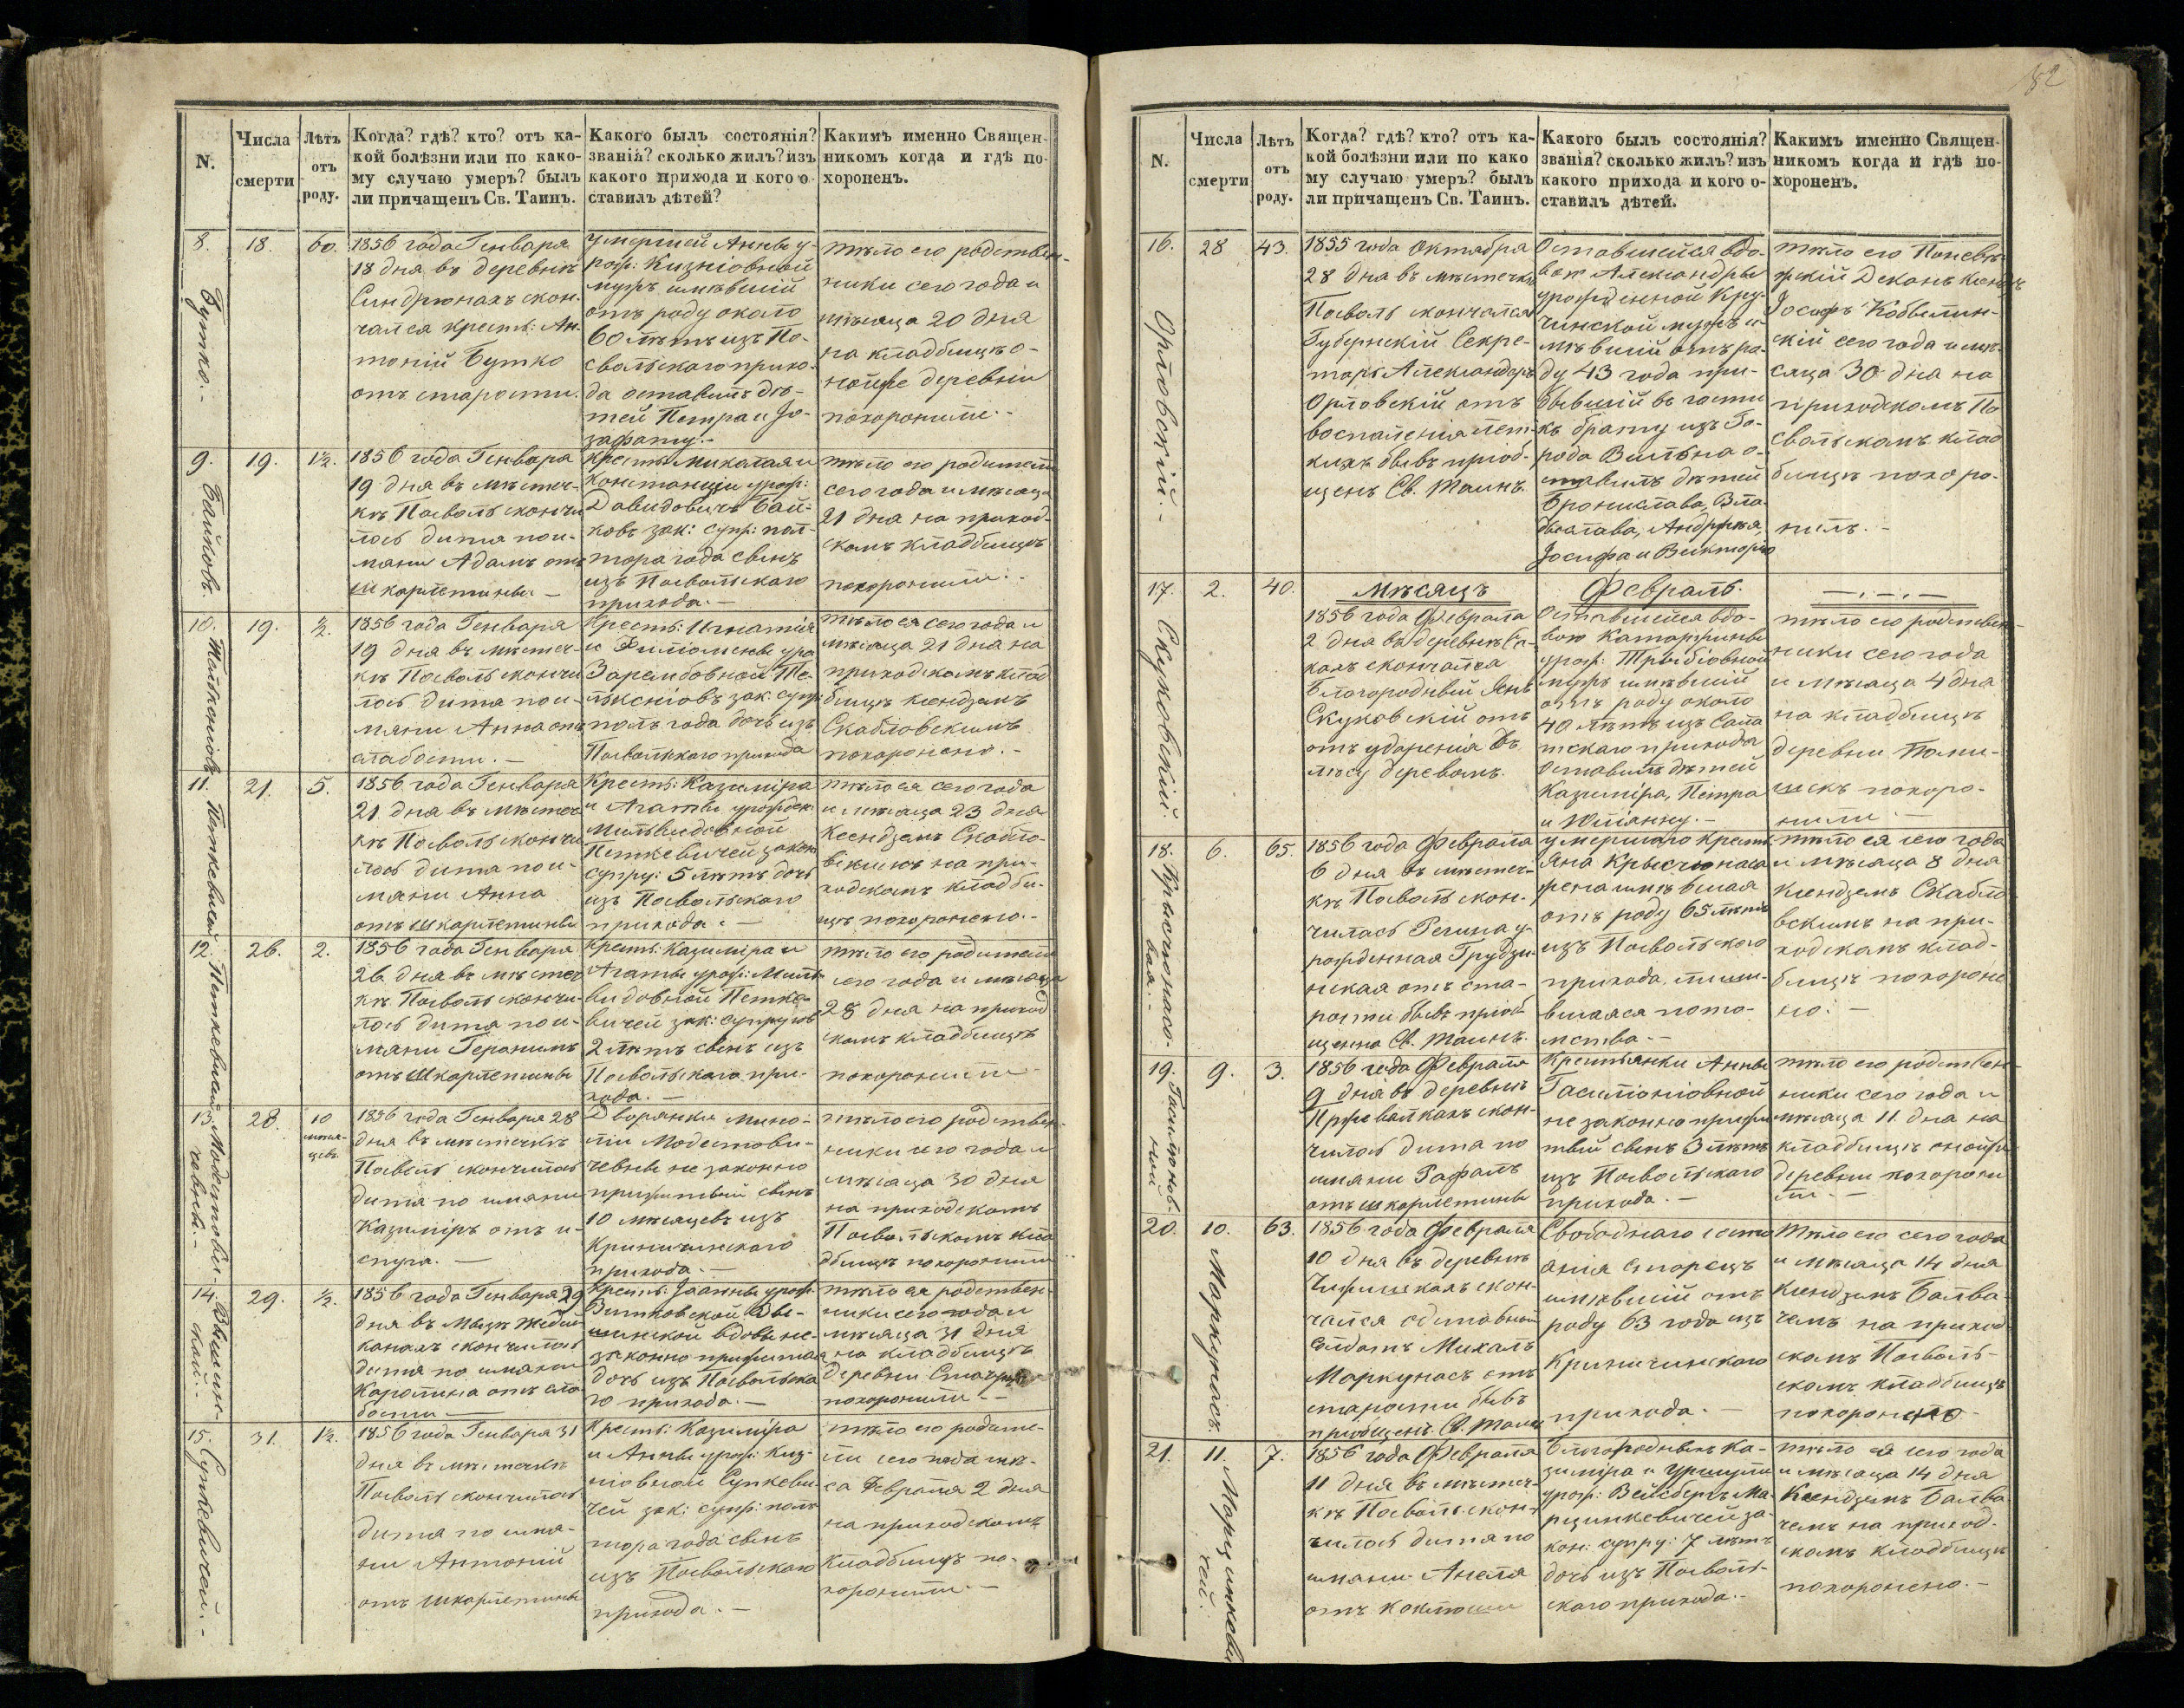 182
N.
Числа
смерти
Лѣтъ
отъ
роду.
Когда? гдѣ? кто? отъ ка-
кой болѣзни или по како-
му случаю умеръ? былъ
ли причащенъ Св. Таинъ.
Какого былъ состоянія?
званія? сколько жилъ? изъ
какого прихода и кого о-
ставилъ дѣтей?
Какимъ именно Священ-
никомъ когда и гдѣ по-
хороненъ.
8.
Бутко.-
18.
60.
1856 года Генваря
18 дня въ деревнѣ
скон-
чался крест: Ан-
тоній Бутко
отъ старости.
Умершей Анны у-
рож: Кизніовной
мужъ имѣвшій
отъ роду около
60 лѣтъ изъ По-
свольскаго прихо-
да оставилъ дѣ-
тей Петра и Іо-
зафату.-
тѣло его родствен-
ники сего года и
мѣсяца 20 дня
на кладбищѣ о-
нойже деревни
похоронили.-
9.
Байковъ.
19.
1½.
1856 года Генваря
19 дня въ мѣстеч-
кѣ Посволь скончи-
лось дитя по и-
мяни Адамъ отъ
шкарлетины.-
Крест: Миколая и
Констанціи урож:
Давидовичъ Бай-
ковъ зак: супр: пол-
тора года сынъ
изъ Посвольскаго
прихода.-
тѣло его родители
сего года и мѣсяца
21 дня на приход-
скомъ кладбищѣ
похоронили.-
10.
19.
½.
1856 года Генваря
19 дня въ мѣстеч-
кѣ Посволь скончи-
лось дитя по и-
мяни Анна отъ
слабости.-
Крест: Игнатія
и Филомены уро
Зарембовной
зак: супр:
полъ года дочь изъ
Посвольскаго прихода
тѣло ея сего года и
мѣсяца 21 дня на
приходскомъ клад-
бищѣ ксендземъ
Скабловскимъ
похоронено.-
11.
Петкевичей
21.
5.
1856 года Генваря
21 дня въ мѣстеч-
кѣ Посволь скончи-
лось дитя по и-
мяни Анна
отъ шкарлетины
Крест: Казиміра
и Агаты урожден:
Мильвидовной
Петкевичей закон:
супру: 5 лѣтъ дочь
изъ Посвольскаго
прихода.-
тѣло ея сего года
и мѣсяца 23 дня
Ксендземъ Скабло-
вскимъ на при-
ходскомъ кладби-
щѣ похоронено.-
12.
Петкевичей
26.
2.
1856 года Генваря
26 дня въ мѣстеч-
кѣ Посволь скончи-
лось дитя по и-
мяни Геронимъ
отъ Шкарлетины
Крест: Казиміра и
Агаты урож: Миль-
видовной Петке-
вичей зак: супруговъ
2 лѣтъ сынъ изъ
Посвольскаго при-
хода.-
тѣло его родители
сего года и мѣсяца
28 дня на приход-
скомъ кладбищѣ
похоронили
13.
Модестови-
чевной.-
28.
10
мѣся-
цевъ.
1856 года Генваря 28
дня въ мѣстечкѣ
Посволь скончилось
дитя по имяни
Казиміръ отъ и-
спуга.-
Дворянки
Модестови-
чевны не законно
прижитый сынъ
10 мѣсяцевъ изъ
Криничинскаго
прихода.-
тѣло его родствен-
ники сего года и
мѣсяца 30 дня
на приходскомъ
Посвольскомъ кла
дбищѣ похоронили
14.
29.
½.
1856 года Генваря 29
дня въ мызѣ
скончилось
дитя по имяни
Каролина отъ сла-
бости
Крест: Іоанны урож:
вдовы не-
законно прижитая
дочь изъ Посвольска
го прихода.-
тѣло ея родствен-
ники сего года и
мѣсяца 31 дня
на кладбищѣ
деревни
похоронили.-
15.
Сункевичей.-
31.
1½.
1856 года Генваря 31
дня въ мѣстечкѣ
Посволь скончилось
дитя по имя-
ни Антоній
отъ шкарлетины
Крест: Казиміра
и Анны урож: Киз-
ніовной Сункеви-
чей зак: супр: пол-
тора года сынъ
изъ Посвольскаго
прихода.-
тѣло его родите-
ли сего года мѣ-
са Февраля 2 дня
на приходскомъ
кладбищѣ по-
хоронили.-
N.
Числа
смерти
Лѣтъ
отъ
роду.
Когда? гдѣ? кто? отъ ка-
кой болѣзни или по како
му случаю умеръ? былъ
ли причащенъ Св. Таинъ.
Какого былъ состоянія?
званія? сколько жилъ? изъ
какого прихода и кого о-
ставилъ дѣтей.
Какимъ именно Священ-
никомъ когда и гдѣ по-
хороненъ.
16.
Орловскій.-
28
43.
1855 года Октября
28 дня въ мѣстечкѣ
Посволь скончался
Губернскій Секре-
тарь Александръ
Орловскій отъ
воспаленія лег-
кихъ бывъ пріоб-
щенъ Св. Таинъ.
Оставшейся вдо-
вою Александры
урожденной Кру-
чинской мужъ и-
мѣвшій отъ ро-
ду 43 года при-
бывшій въ гости
къ брату изъ Го-
рода Вильна о-
ставилъ дѣтей
Бронислава, Вла-
дислава, Андржея,
Іосифа и Викторію
тѣло его Поневѣ-
жскій Деканъ Ксендзъ
Іосифъ Кобылин-
скій сего года и мѣ-
сяца 30 дня на
приходскомъ По
свольскомъ клад
бищѣ похоро-
нилъ.-
17.
Скуковскій.
2.
40.
мѣсяцъ
Февраль.
1856 года Февраля
2 дня въ деревнѣ
скончался
Благородный Янъ
Скуковскій отъ
отъ ударенія въ
лѣсу деревомъ.
Оставшейся вдо-
вою Катаржины
урож: Трыбіовной
мужъ имѣвшій
отъ роду около
40 лѣтъ изъ Сала
тскаго прихода
оставилъ дѣтей
Казиміра, Петра
и Юліанну.-
тѣло его родствен-
ники сего года
и мѣсяца 4 дня
на кладбищѣ
деревни
похоро-
нили.-
18.
6.
65.
1856 года Февраля
6 дня въ мѣстеч-
кѣ Посволь скон-
чилась Регина у-
рожденная Грудзи-
нская отъ ста-
рости бывъ пріоб
щенна Св. Таинъ.
умершаго крест
Яна Крысчюнаса
жена имѣвшая
отъ роду 65 лѣтъ
изъ Посвольскаго
прихода, лиши-
вшаяся пото-
мства.-
тѣло ея сего года
и мѣсяца 8 дня
Ксендземъ Скабло
вскимъ на при-
ходскомъ клад-
бищѣ похороне
но.-
19.
9.
3.
1856 года Февраля
9 дня въ деревнѣ
скон-
чилось дитя по
имяни Рафалъ
отъ шкарлетины
Крестьянки Анны
Гасилюніовной
не законно прижи
тый сынъ 3 лѣтъ
изъ Посвольскаго
прихода.-
тѣло его родствен
ники сего года и
мѣсяца 11 дня на
кладбищѣ онойже
деревни похорони
ли.-
20.
Маркунасъ.
10.
63.
1856 года Февраля
10 дня въ деревнѣ
скон-
чался отставный
солдатъ Михалъ
Маркунасъ отъ
старости бывъ
пріобщенъ Св. Таинъ
Свободнаго состо
янія
имѣвшій отъ
роду 63 года изъ
Криничинскаго
прихода.-
Тѣло его сего года
и мѣсяца 14 дня
Ксендземъ Балва-
чемъ на приход-
скомъ Посволь-
скомъ кладбищѣ
похоронено
21.
Марцинкеви
чей.
11.
7.
1856 года Февраля
11 дня въ мѣстеч-
кѣ Посволь скон-
чилось дитя по
имяни Анеля
отъ коклюши
Благородныхъ Ка-
зиміра и Уршули
урож: Вейсбергъ Ма-
рцинкевичей за-
кон: супру: 7 лѣтъ
дочь изъ Посволь-
скаго прихода.-
тѣло ея сего года
и мѣсяца 14 дня
Ксендземъ Балва
чемъ на приход-
скомъ кладбищѣ
похоронено.-